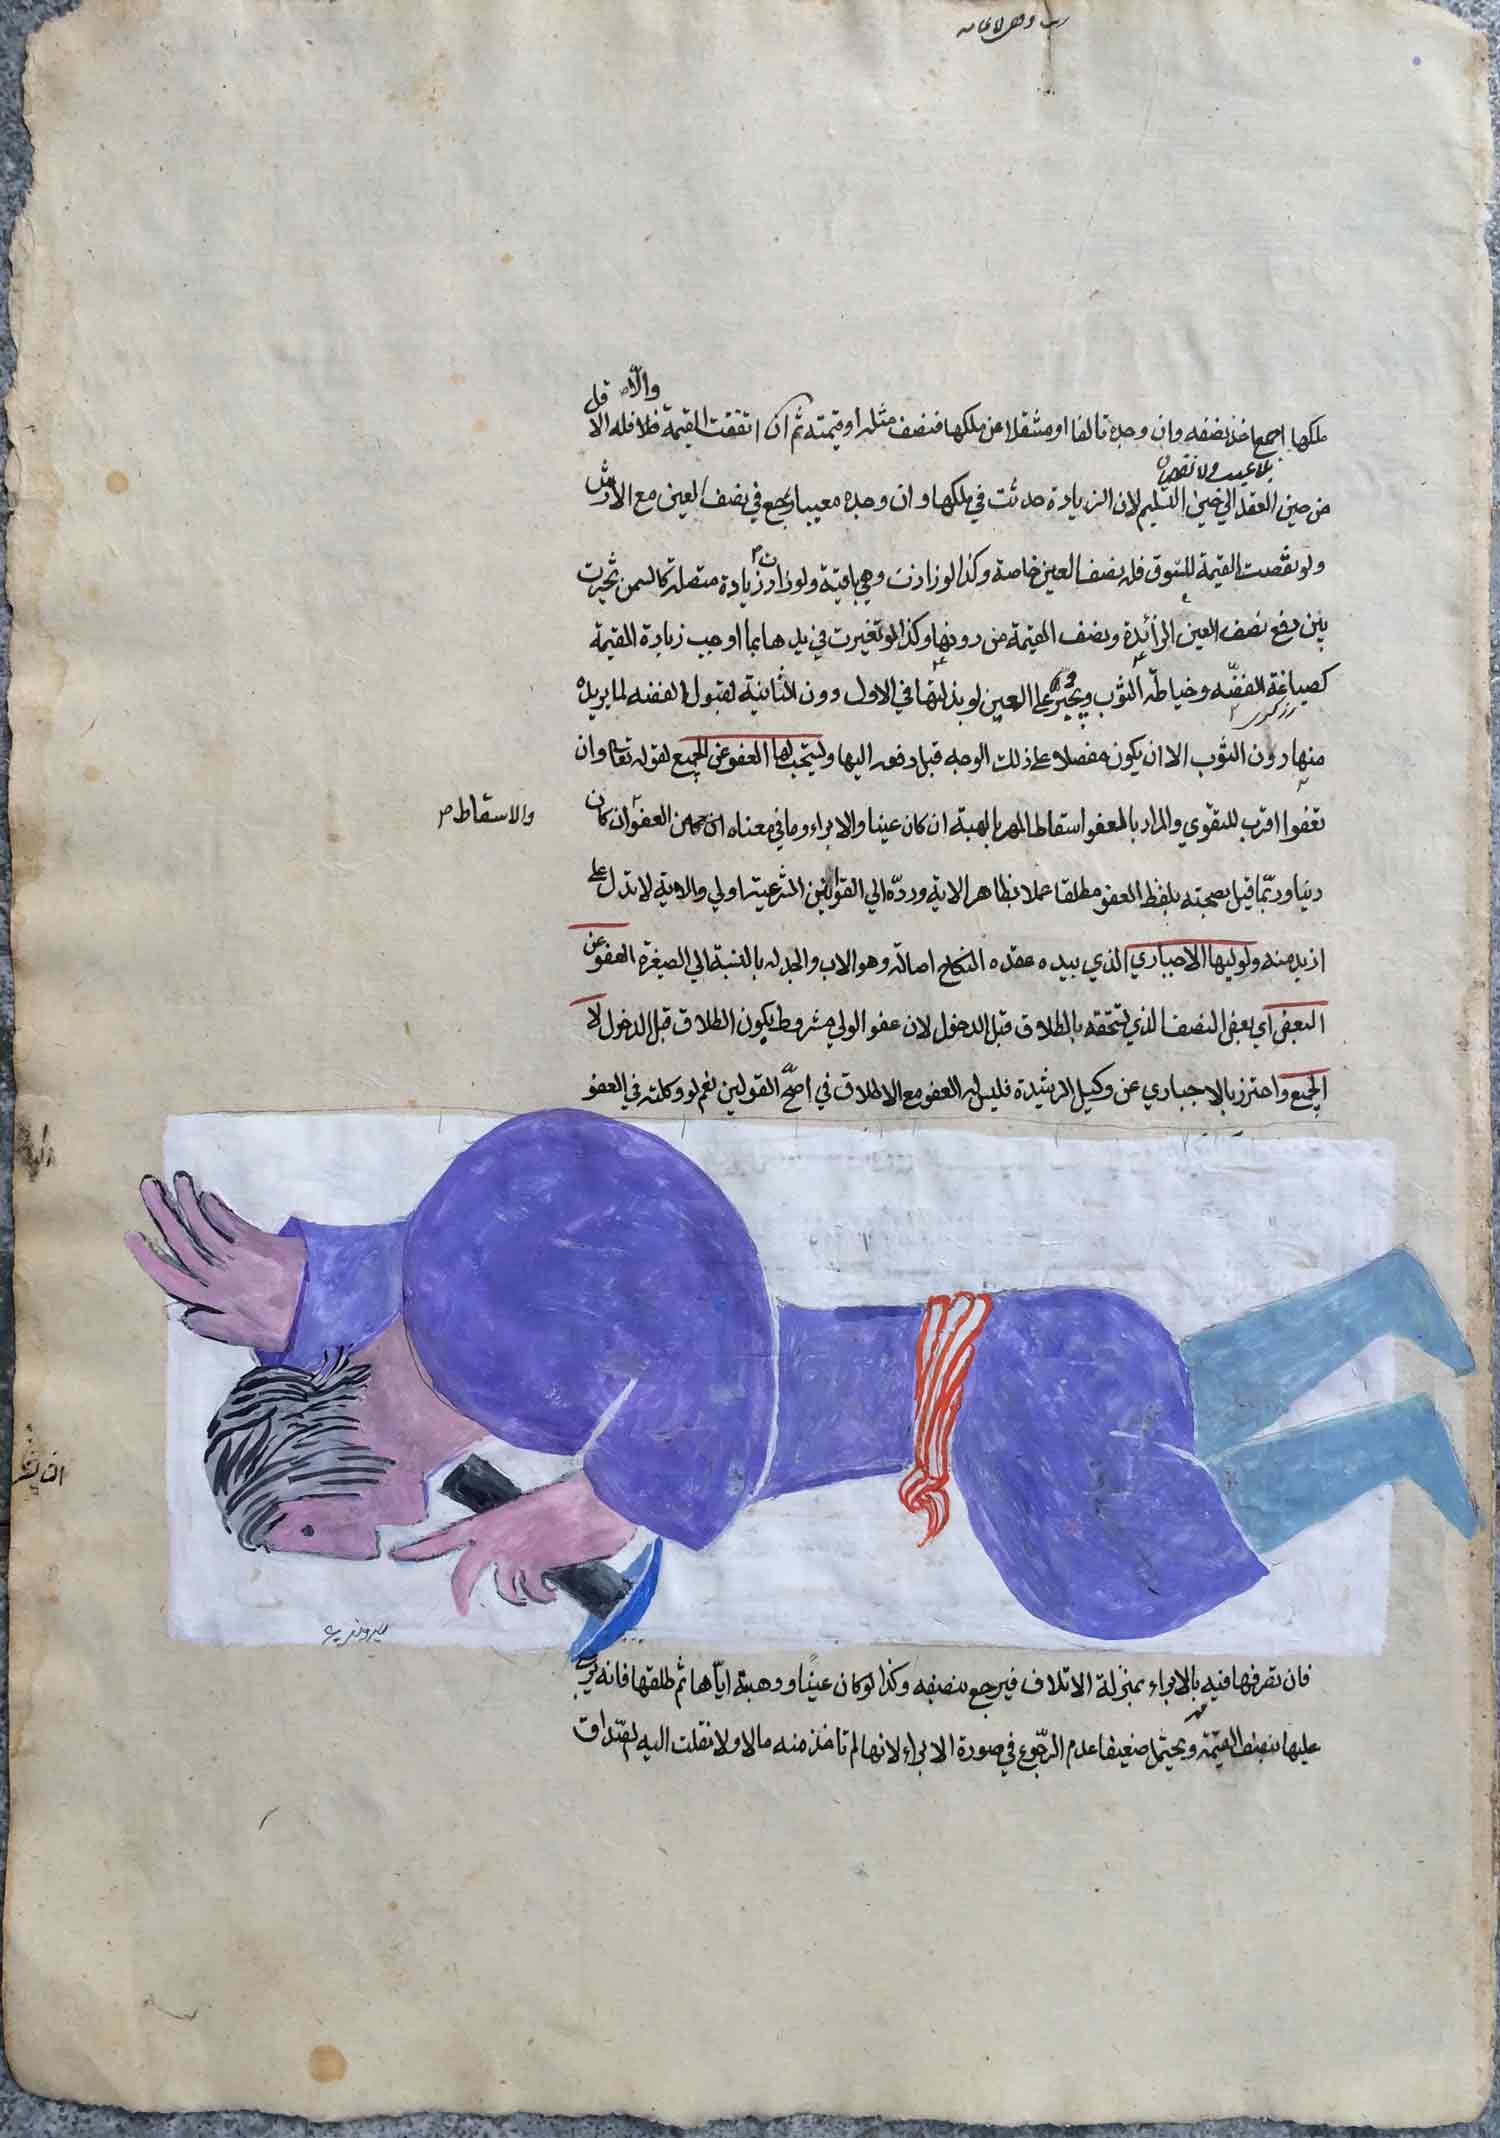 ملكها اجمع اخذ نصفه وان وجده تالفا او منتقلا عن ملكها فنصف مثله او قيمته ثم ان اتفقت القيمة فلا فله الاقل
والا
من حين العقد الي حين التسليم لان الزيادة حدثت في ملكها وان وجده معيبا رجع في نصف العين مع الارش
بلا عيب ولا نقصان
ولو نقصت القيمة للسوق فله نصف العين خاصة وكذا لو زادت وهي باقية ولو زادت زيادة متصلة كالسمن تخيرت
بين دفع نصف العين الزائدة ونصف القيمة من دونها وكذا لو تغيرت في يدها بما اوجب زيادة القيمة
كصياغة الفضه وخياطة الثوب ويجبر على العين لو بذلتها في الاول دون الثانية لقبول الفضه لما يريده
منها دون الثوب الا ان يكون مفصلا على ذلك الوجه قبل دفعه اليها ويستحب لها العفو عن الجميع لقوله تعالى وان
تعفوا اقرب للتقوي والمراد بالعفو اسقاط المهر بالهبة ان كان عينا والابراء وما في معناه من العفو ان كان
والاسقاط
دينا وربما قيل بصحته بلفظ العفو مطلقا عملا بظاهر الاية ورده الي القوانين الشرعية اولي والاية لا تدل على
ازيد منه ولوليها الاجباري الذي بيده عقدة النكاح اصالة وهو الاب والجد له بالنسبة الي الصغيرة العفو عن
البعض اي بعض النصف الذي تستحقه بالطلاق قبل الدخول لان عفو الولي مشروط بكون الطلاق قبل الدخول لا
الجميع واحترز بالاجباري عن وكيل الرشيدة فليس له العفو مع الاطلاق في اصح القولين نعم لو وكلته في العفو
فان تصرفها فيه بالابراء بمنزلة الاتلاف فيرجع بنصفه وكذا لو كان عينا ووهبته اياها ثم طلقها فانه يرجع
عليها بنصف القيمة ويحتمل ضعيفا عدم الرجوع في صورة الابراء لانها لم تاخذ منه مالا ولا نقلت اليه الصداق